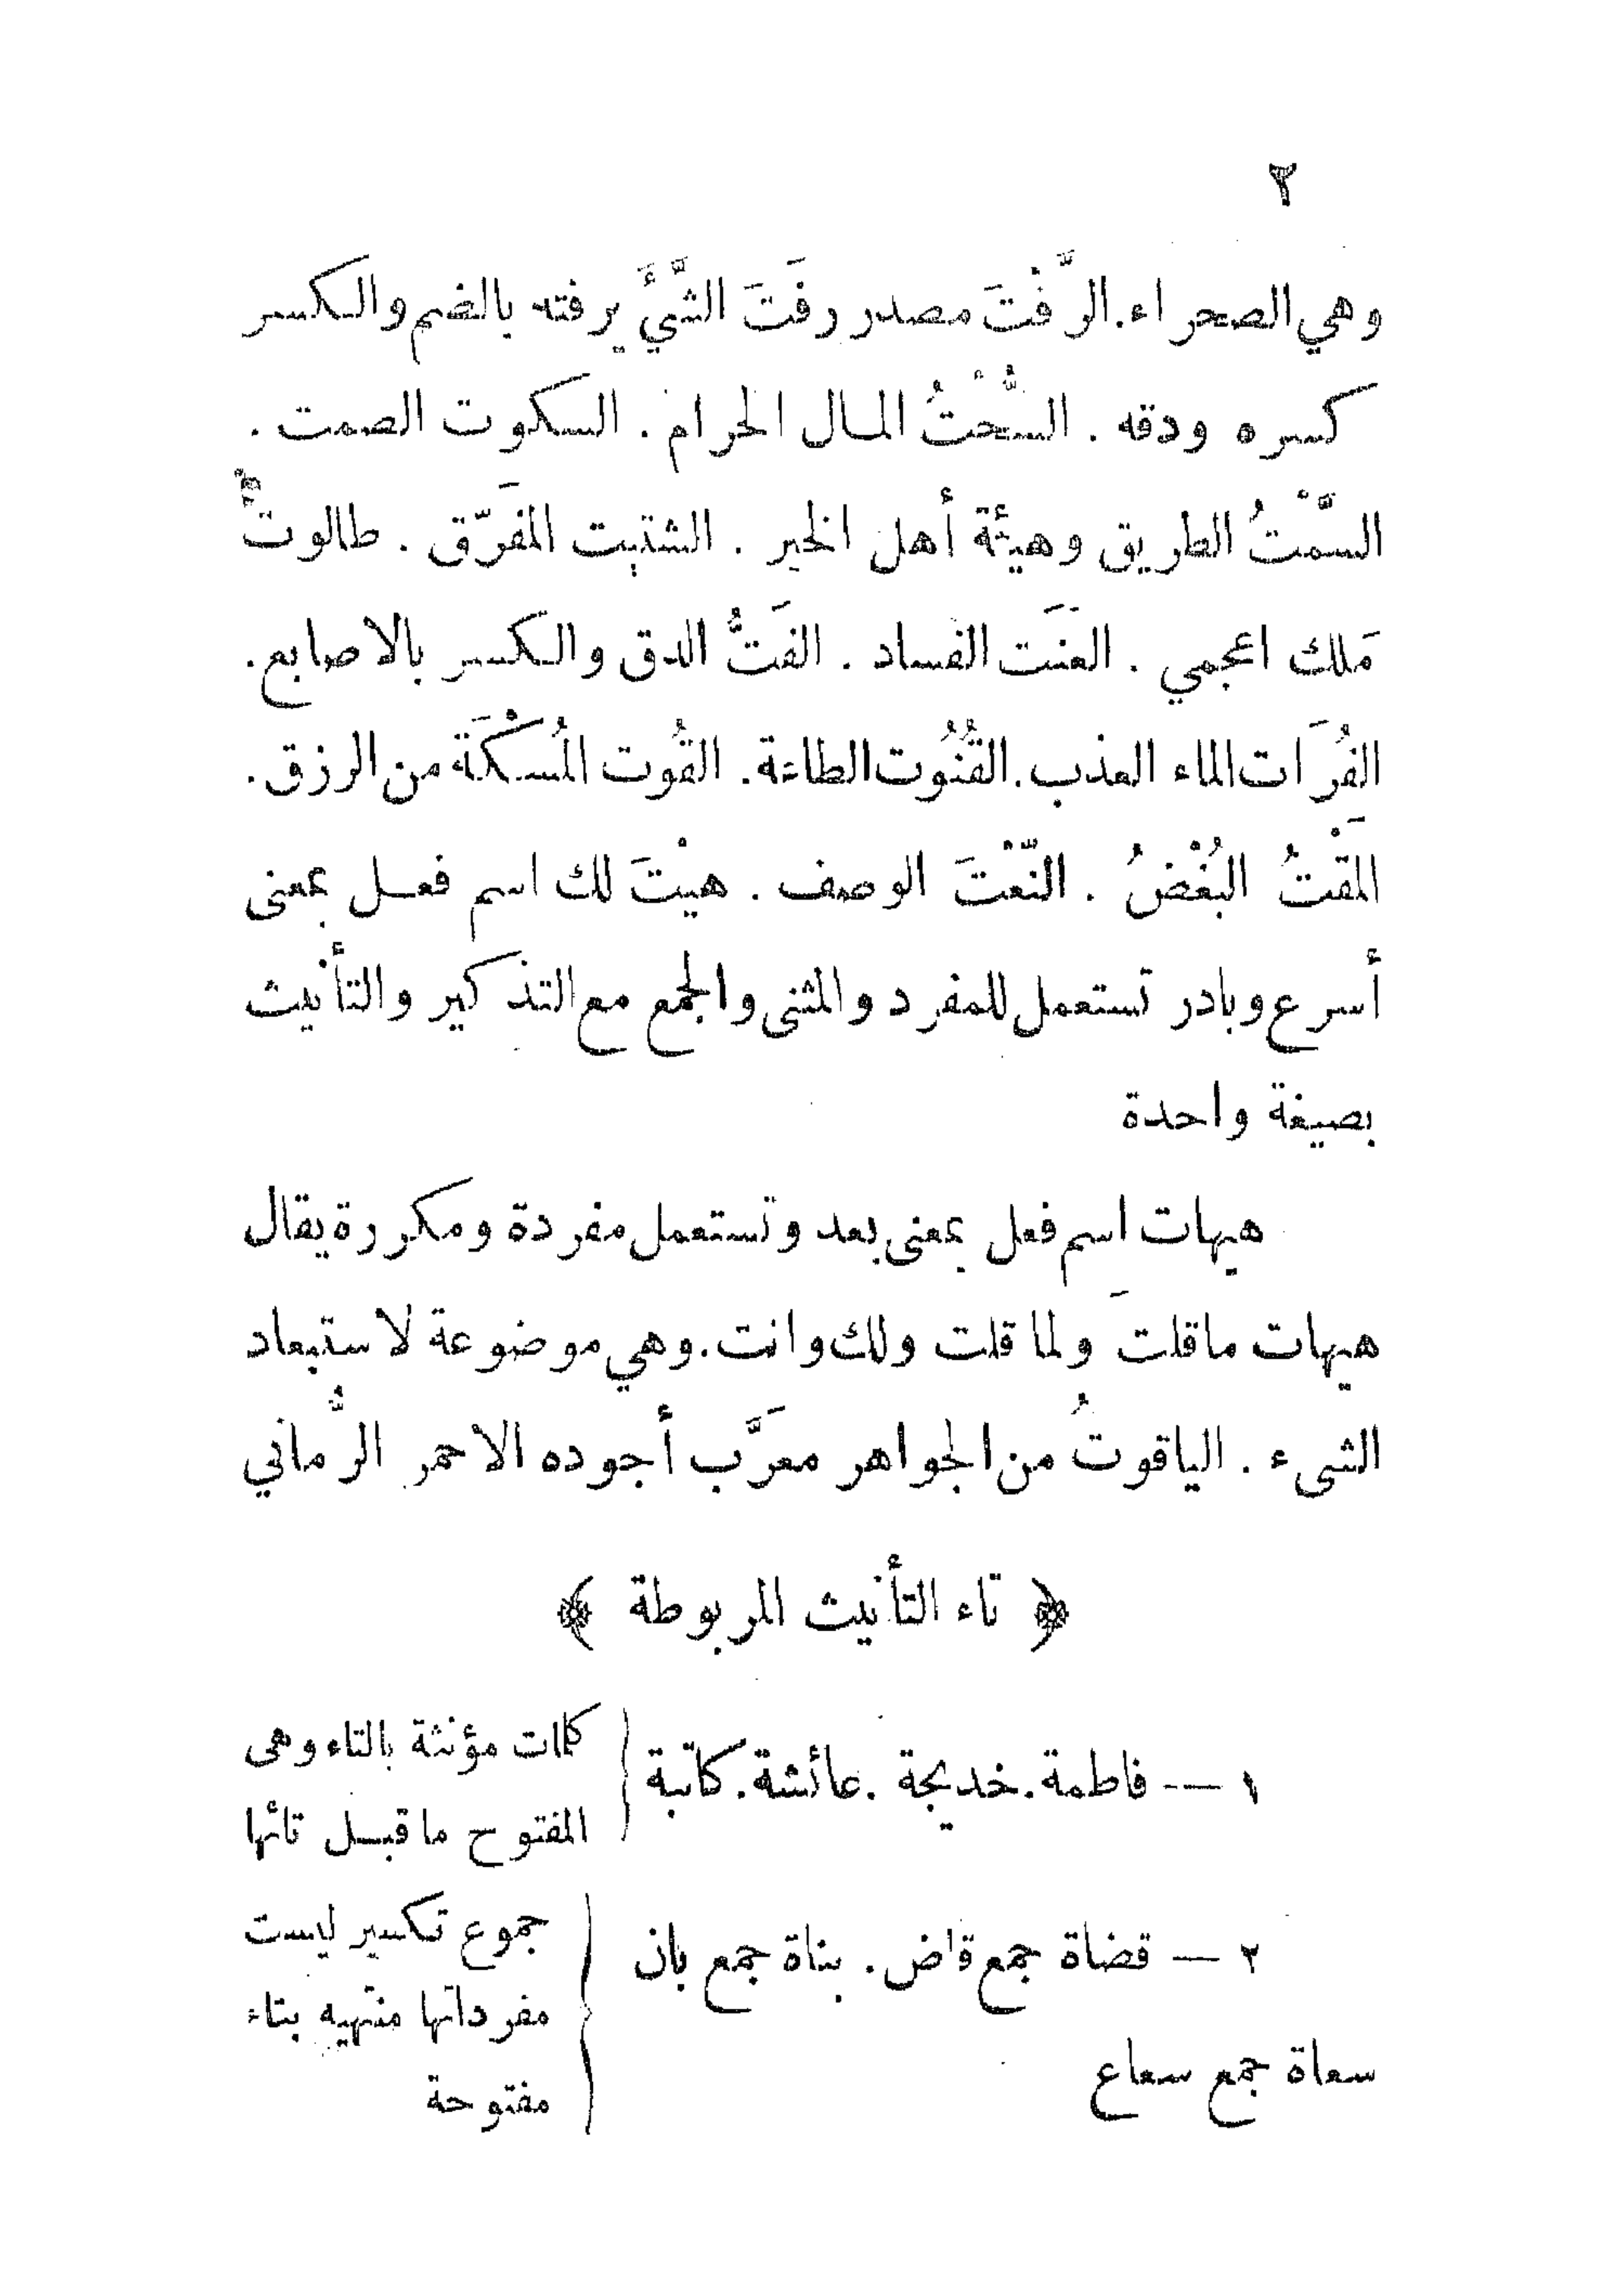 ٢
وهي الصحراء. الرَّفْتَ مصدر رفَتَ الشَّيَْ يرفته بالضم والكسر
كسره ودقه . السُّحْتُ المال الحرام . السكوت الصمت .
السَّمْتُ الطريق وهيئة أهل الخير . الشتيت المفَرّق . طالوتُ
مَلك اعجمي . العنَت الفساد . الفَتُّ الدق والكسر بالاصابع.
الفُرَات الماء العذب. القُنُوت الطاعة. القُوت المُسْكَة من الرزق.
المَقْتُ البُغْضُ . النّعْتَ الوصف . هيْتَ لك اسم فعل بمعنى
أسرع وبادر تستعمل للمفرد والمثنى والجمع مع التذكير والتأنيث
بصيغة واحدة
هيهات اسم فعل بمعنى بعد وتستعمل مفردة ومكررة يقال
هيهات ماقلتَ ولما قلت ولك وانت. وهي موضوعة لاستبعاد
الشىء . الياقوتُ من الجواهر معَرَّب أجوده الاحمر الرُّماني
﴿ تاء التأنيث المربوطة ﴾
١ — فاطمة. خديجة . عائشة. كاتبة
كلمات مؤنثة بالتاء وهى
المفتوح ما قبل تائها
٢ — قضاة جمع قاض. بناة جمع بان
سعاة جمع سعاع
جموع تكسير ليست
مفرداتها منتهيه بتاء
مفتوحة